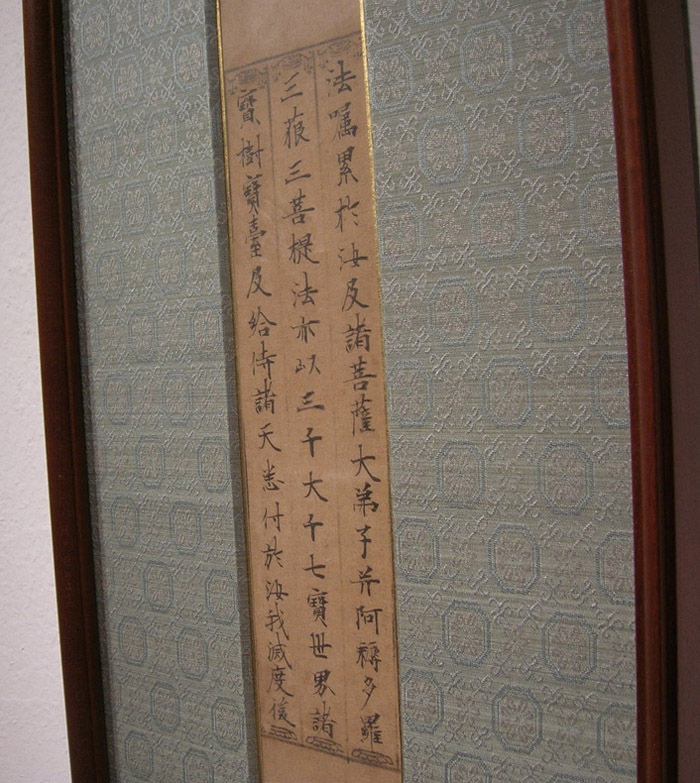 法囑累於汝及諸菩薩大弟子并阿耨多羅
三藐三菩提法亦以三千大千七寶世界諸
寶樹寶臺及給侍諸天悉付於汝我滅度後